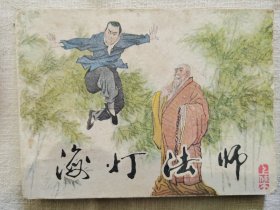 海灯法师